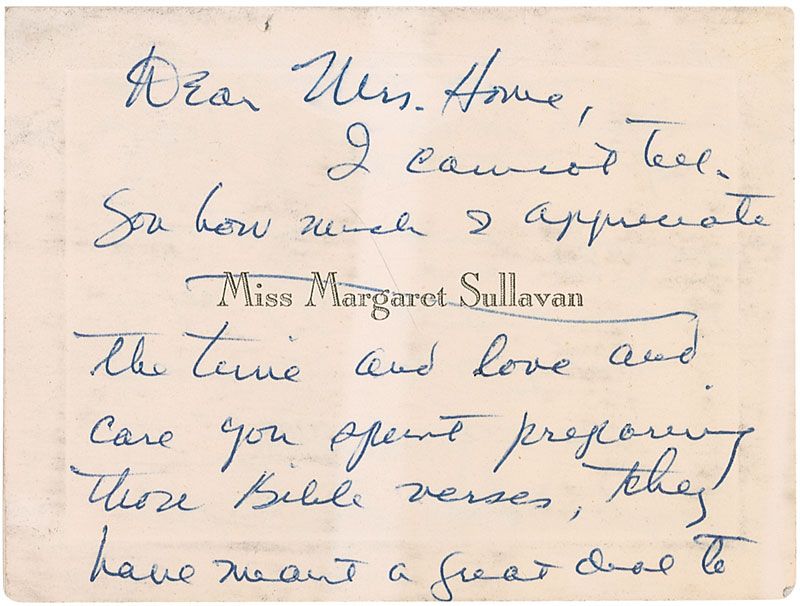 Dear Mrs. Horne,
I cannot tell
you how much I appreciate
Miss Margaret Sullavan
the time and love and
care you spent preparing
those Bible verses, they
have meant a great deal to